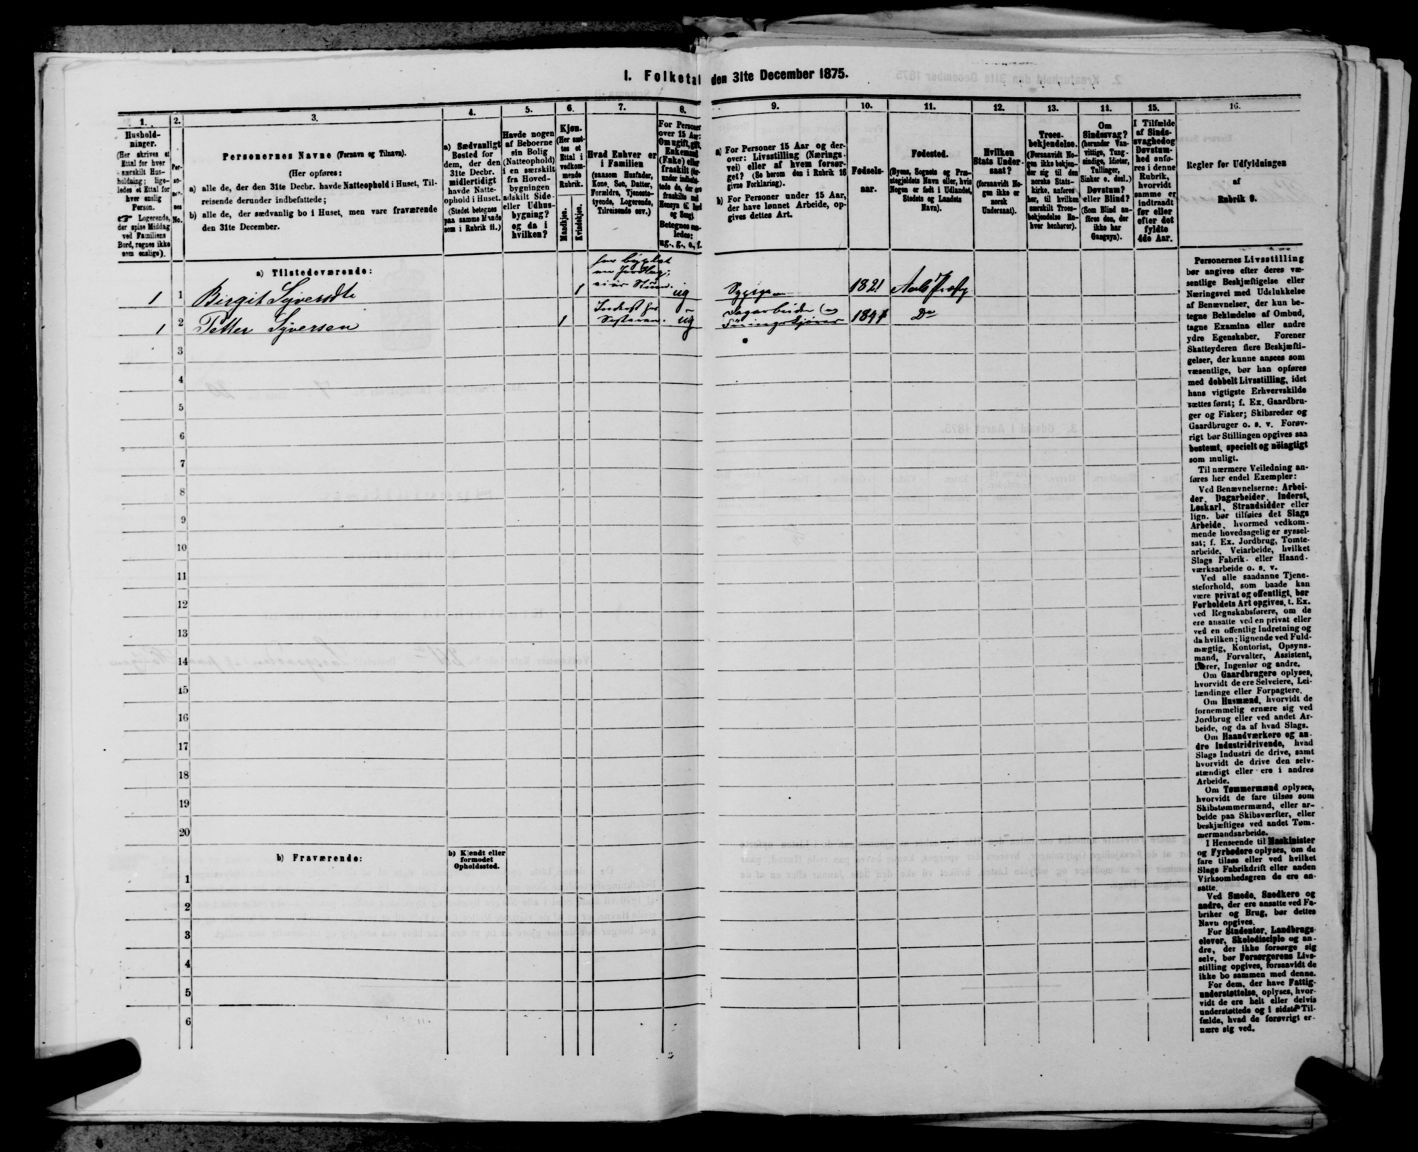 I. Folketal den 31te December 1875.
1.
Hushold-
ninger.
(Her skrives et
Ettal for hver
særskilt Hus-
holdning; lige-
ledes et Ettal for
hver enslig
Person.
☞ Logerende,
der spise Middag
ved Familiens
Bord, regnes ikke
som enslige).
2.
Per-
so-
ner-
nes
No.
3.
Personernes Navne (Fornavn og Tilnavn).
(Her opføres:
a) alle de, der den 31te Decbr. havde Natteophold i Huset, Til-
reisende derunder indbefattede;
b) alle de, der sædvanlig bo i Huset, men vare fraværende
den 31te December.
4.
a) Sædvanligt
Bosted for
dem, der den
31te Decbr.
midlertidigt
havde Natte-
ophold i Huset.
(Stedet betegnes
paa samme Maade
som i Rubrik 11.)
5.
Havde nogen
af Beboerne
sin Bolig
(Natteophold)
i en særskilt
fra Hoved-
bygningen
adskilt Side-
eller Udhus-
bygning?
og da i
hvilken?
6.
Kjøn.
(Her sæt-
tes et
Ettal i
vedkom-
mende
Rubrik.
Mandkjøn.
Kvindekjøn.
7.
Hvad Enhver er
i Familien
(saasom Husfader,
Kone, Søn, Datter,
Forældre, Tjeneste-
tyende, Logerende,
Tilreisende osv.)
8.
For Personer
over 15 Aar:
Om ugift, gift,
Enkemand
(Enke) eller
fraskilt
Betegnes
saa-
ledes:
ug., g., e., f.
9.
a) For Personer 15 Aar og der-
over: Livsstilling (Nærings-
vei) eller af hvem forsør-
get? (Se herom den i Rubrik 16
givne Forklaring).
b) For Personer under 15 Aar,
der have lønnet Arbeide, op-
gives dettes Art.
10.
Fødsels-
aar.
11.
Fødested.
(Byens, Sognets og Præ-
stegjeldets Navn eller, hvis
Nogen er født i Udlandet,
Stedets og Landets
Navn).
12.
Hvilken
Stats Under-
saat?
(forsaavidt No-
gen ikke er
norsk
Undersaat).
13.
Troes-
bekjendelse.
(Forsaavidt No-
gen ikke bekjen-
der sig til den
norske Stats-
kirke, anføres
her, til hvilken
særskilt Troes-
bekjendelse En-
hver henhører).
14.
Om
Sindssvag?
(herunder Van-
vittige, Tung-
sindige, Idioter,
Tullinger,
Sinker o. desl.)
Døvstum?
eller Blind?
(Som Blind an-
føres den, der
ikke har
Gangsyn).
15.
I Tilfælde
af Sinds-
svaghed og
Døvstum-
hed anfø-
res i denne
Rubrik,
hvorvidt
samme er
indtraadt
før eller
efter det
fyldte
4de Aar.
16.
Regler for Udfyldningen
af
Rubrik 9.
a) Tilstedeværende:
1 1 Birgit Syversdtr 1 ug 1821
1 2 Petter Syversen 1 ug Dagarbeider 184 Do
3
4
5
6
7
8
9
10
11
12
13
14
15
16
17
18
19
20
b) Fraværende:
b) Kjendt eller
formodet
Opholdssted.
1
2
3
4
5
6
Personernes Livsstilling
bør angives efter deres væ-
sentlige Beskjæftigelse eller
Næringsvei med Udelukkelse
af Benævnelser, der kun be-
tegne Beklædelse af Ombud,
tagne Examina eller andre
ydre Egenskaber. Forener
Skatteyderen flere Beskjæfti-
gelser, der kunne ansees som
væsentlige, bør han opføres
med dobbelt Livsstilling, idet
hans vigtigste Erhvervskilde
sættes først; f. Ex. Gaardbru-
ger og Fisker; Skibsreder og
Gaardbruger o. s. v. Forøv-
rigt bør Stillingen opgives saa
bestemt, specielt og nøiagtigt
som muligt.
Til nærmere Veiledning an-
føres her endel Exempler:
Ved Benævnelserne: Arbei-
der, Dagarbeider, Inderst,
Løskarl, Strandsidder eller
lign. bør tilføies det Slags
Arbeide, hvormed vedkom-
mende hovedsagelig er syssel-
sat; f. Ex. Jordbrug, Tomte-
arbeide, Veiarbeide, hvilket
Slags Fabrik- eller Haand-
værksarbeide o. s. v.
Ved alle saadanne Tjene-
steforhold, som baade kan
være privat og offentligt, bør
Forholdets Art opgives, t. Ex.
ved Regnskabsførere, om de
ere ansatte ved en privat eller
ved en offentlig Indretning og
da hvilken; lignende ved Fuld-
mægtig, Kontorist, Opsyns-
mand, Forvalter, Assistent,
Lærer, Ingeniør og andre.
Om Gaardbrugere oplyses,
hvorvidt de ere Selveiere, Lei-
lændinge eller Forpagtere.
Om Husmænd, hvorvidt de
fornemmelig ernære sig ved
Jordbrug eller ved andet Ar-
beide, og da af hvad Slags.
Om Haandværkere og an-
dre Industridrivende, hvad
Slags Industri de drive, samt
hvorvidt de drive den selv-
stændigt eller ere i andres
Arbeide.
Om Tømmermænd oplyses,
hvorvidt de fare tilsøs som
Skibstømmermænd, eller ar-
beide paa Skibsværfter, eller
beskjæftiges ved andet Tøm-
mermandsarbeide.
I Henseende til Maskinister
og Fyrbødere oplyses, om de
fare tilsøs eller ved hvilket
Slags Fabrikdrift eller anden
Virksomhedsgren de ere an-
satte.
Ved Smede, Snedkere og
andre, der ere ansatte ved Fa-
briker og Brug, bør dettes
Navn opgives.
For Studenter, Landbrugs-
elever, Skoledisciple og an-
dre, der ikke forsørge sig
selv, bør Forsørgerens Livs-
stilling opgives, forsaavidt de
ikke bo sammen med denne.
For dem, der have Fattig-
understøttelse, oplyses, hvor-
vidt de ere helt eller delvis
understøttede og i sidste Til-
fælde, hvad de forøvrigt er-
nære sig ved.